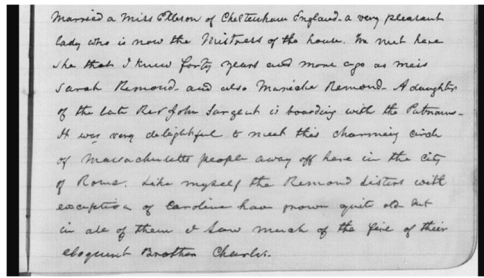 Married a Miss Ellerson of Cheltenham England. a very pleasant
lady who is now the Mistress of the house. We met here
she that I knew forty years and more ago as miss
Sarah Remond - and also Maricha Remond - A daughter
of the late Rev John Sargent is boarding with the Putnams -
It was very delightful to meet this charming circle
of Massachusetts people away off here in the city
of Rome. Like myself the Remond sisters with
exception of Caroline have grown quite old but
in all of them I saw much of the fire of their
eloquent Brother Charles.